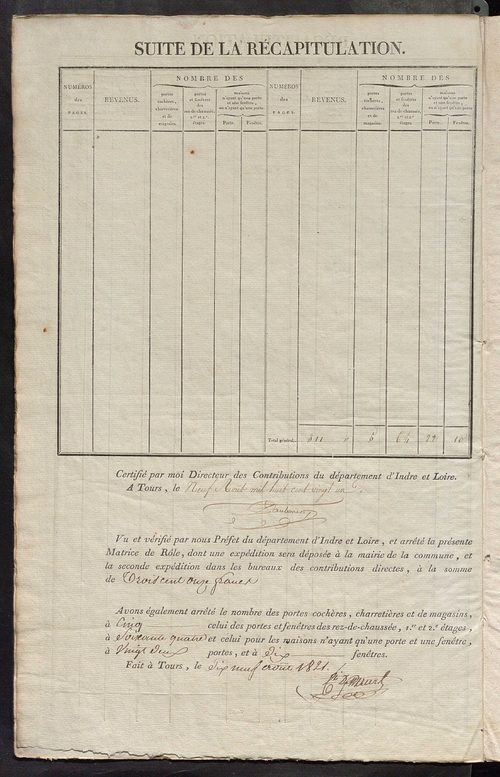 SUITE DE LA RÉCAPITULATION.
NUMÉROS
des
PAGES.
REVENUS.
NOMBRE DES
portes
cochères,
charretières
et de
magasins.
portes
et fenêtres
des
rez-de-chaussée,
1.er et 2.e
étages.
maisons
n'ayant qu'une porte
et une fenêtre,
Porte.
Fenêtre.
NUMÉROS
des
PAGES.
REVENUS.
NOMBRE DES
portes
cochères,
charretières
et de
magasins.
portes
et fenêtres
des
rez-de-chaussée,
1.er et 2.e
étages.
maisons
n'ayant qu'une porte
et une fenêtre,
Porte.
Fenêtre.
Total général. 64 22 10
Certifié par moi Directeur des Contributions du département d'Indre et Loire.
A Tours, le Neuf Août mil huit cent vingt un
Vu et vérifié par nous Préfet du département d'Indre et Loire, et arrêté la présente
Matrice de Rôle, dont une expédition sera déposée à la mairie de la commune, et
la seconde expédition dans les bureaux des contributions directes, à la somme
de cent onze francs
Avons également arrêté le nombre des portes cochères, charretières et de magasins,
à Cinq celui des portes et fenêtres des rez-de-chaussée, 1.er et 2.e étages,
à Soixante quatre et celui pour les maisons n'ayant qu'une porte et une fenêtre,
à Vingt deux portes, et à Dix fenêtres.
Fait à Tours, le Dix neuf août 1821.